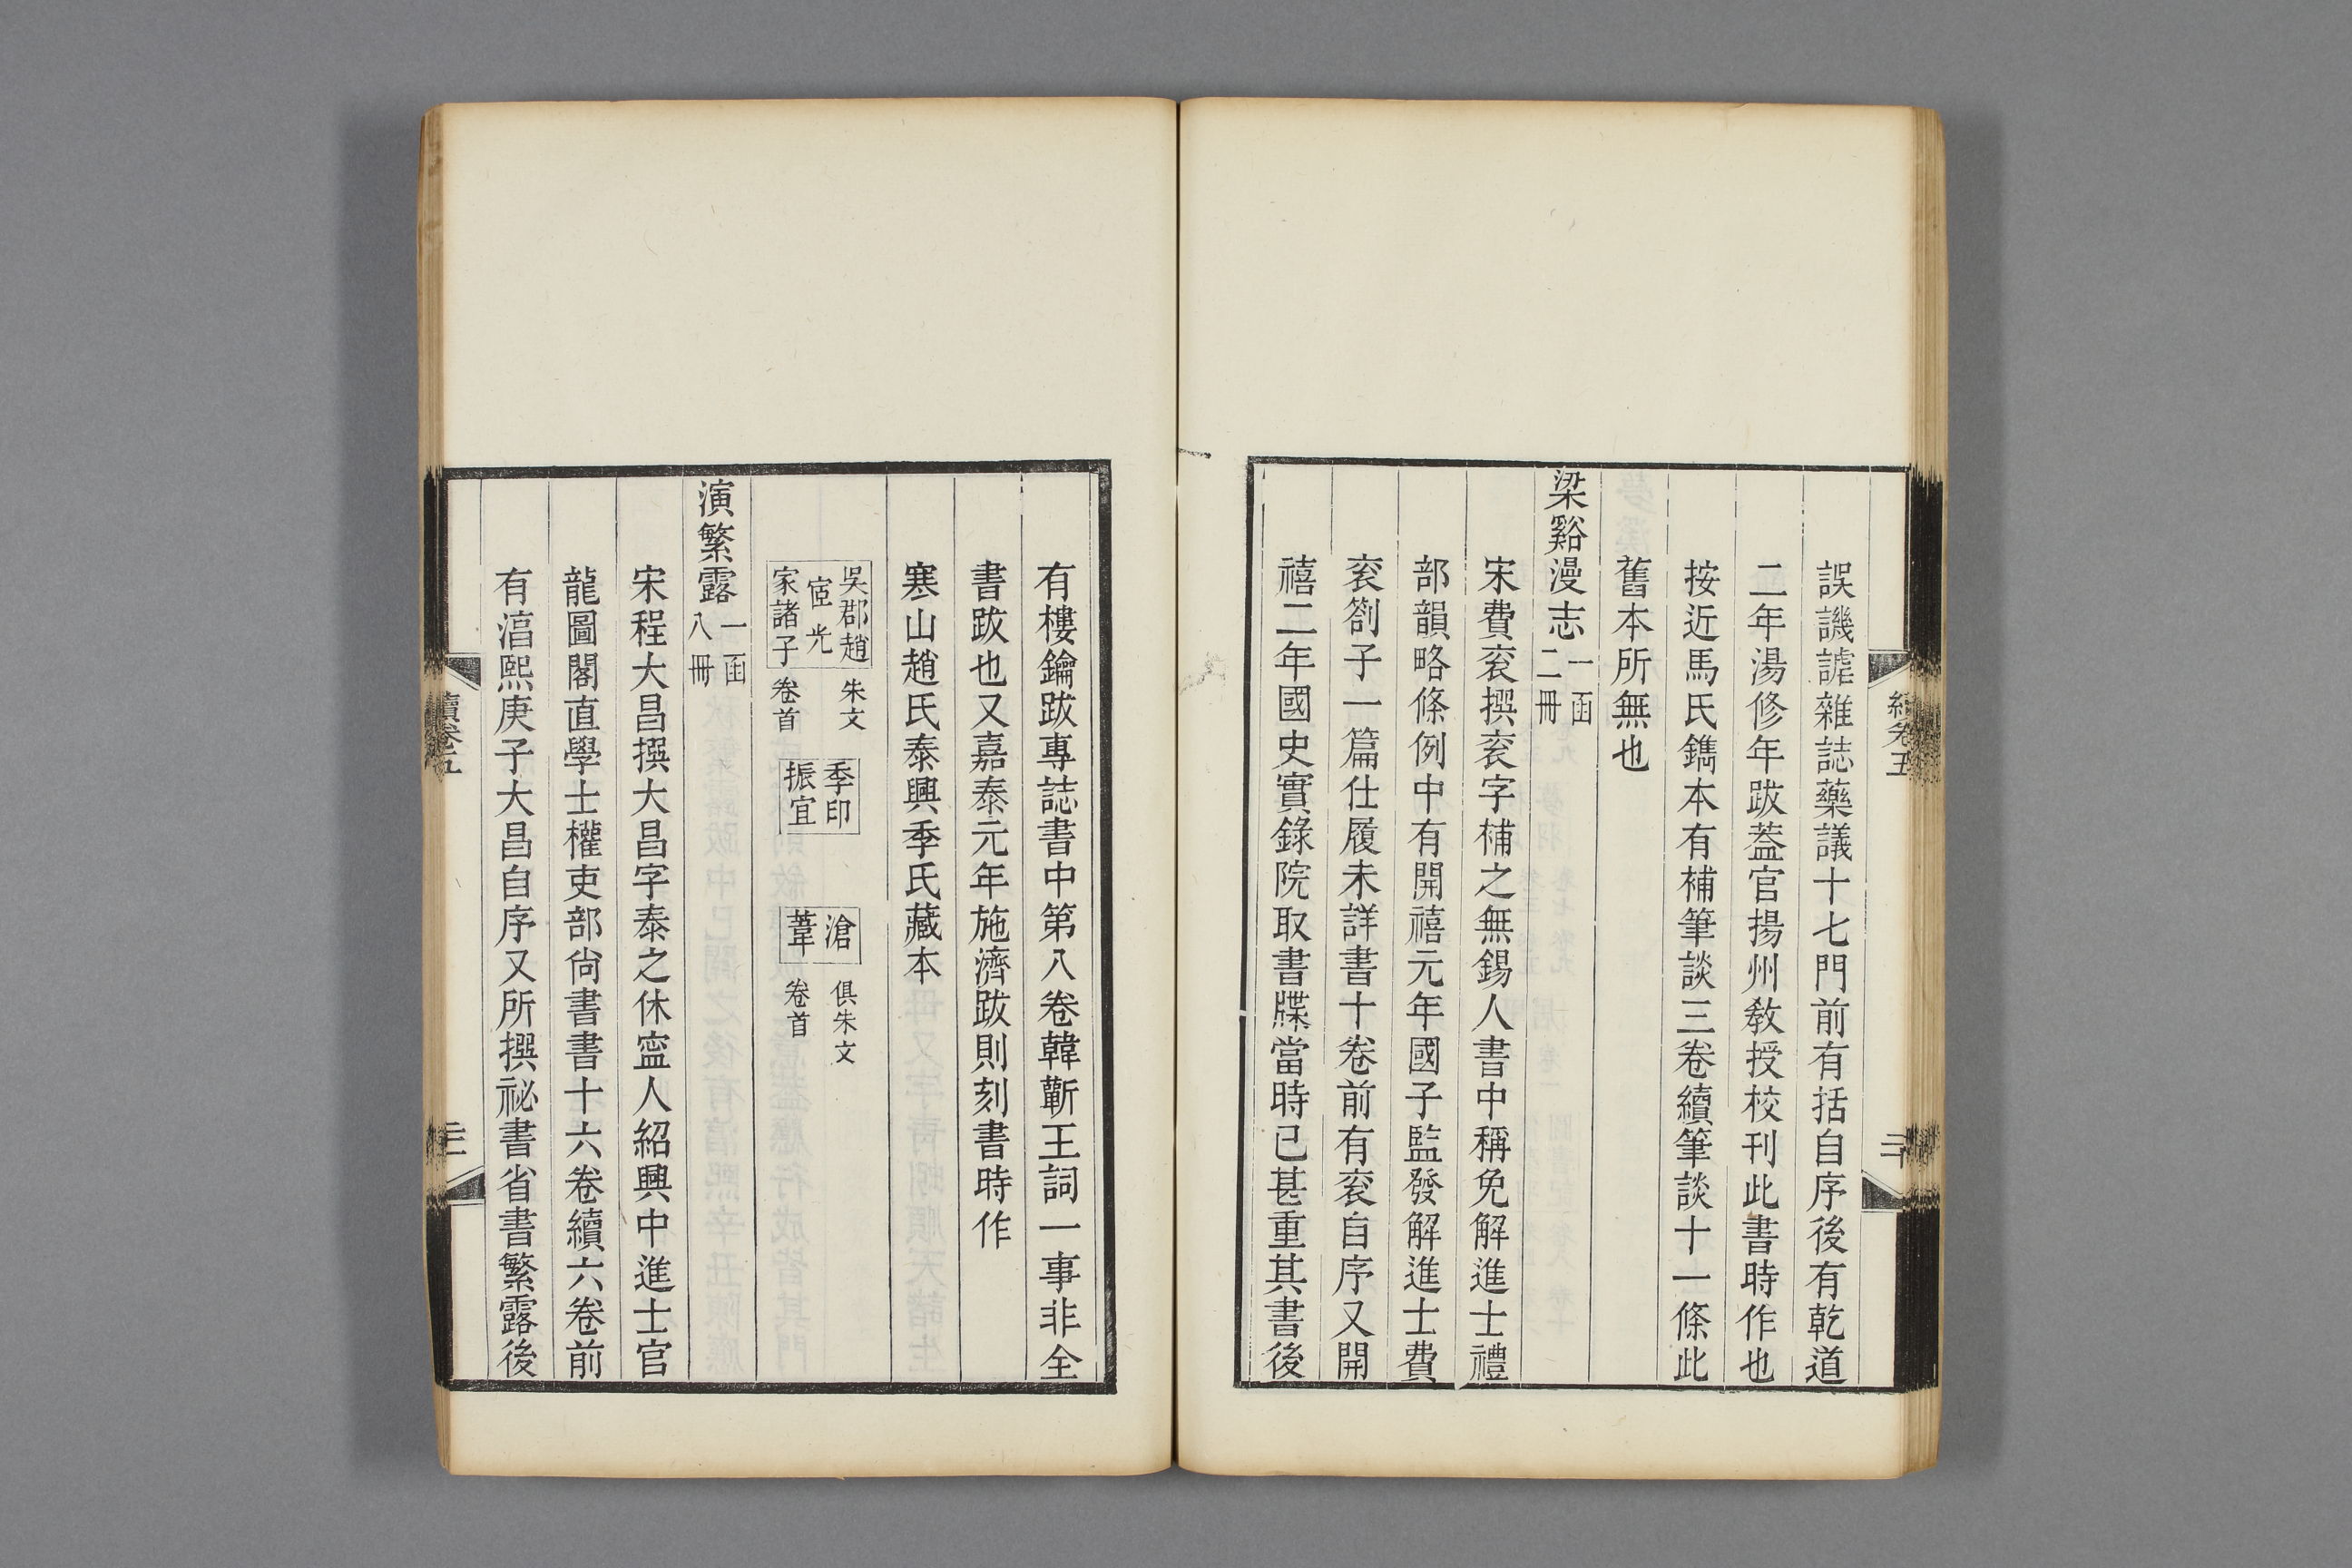 誤譏謔雜誌藥議十七門前有括自序後有乾道
二年湯修年跋蓋官揚州敎授校刊此書時作也
按近馬氏鐫本有補筆談三卷續筆談十一條此
舊本所無也
梁谿漫志一函二冊
宋費衮撰衮字補之無錫人書中稱免解進士禮
部韻略條例中有開禧元年國子監發解進士費
衮劄子一篇仕履未詳書十卷前有衮自序又開
禧二年國史實錄院取書牒當時已甚重其書後
有樓鑰跋專誌書中第八卷韓蘄王詞一事非全
書跋也又嘉泰元年施濟跋則刻書時作
寒山趙氏泰興季氏藏本
吳郡趙
宧光
家諸子
朱文
卷首
季印
振宜
滄
葦
俱朱文
卷首
演繁露一函八冊
宋程大昌撰大昌字泰之休寍人紹興中進士官
龍圖閣直學士權吏部尙書書十六卷續六卷前
有湻熙庚子大昌自序又所撰祕書省書繁露後
續卷五